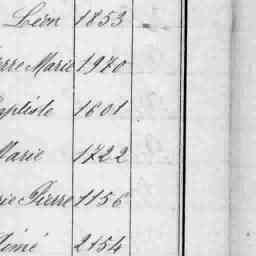 Léon 1853
erre Marie 1970
aptiste 1601
Marie 1722
rie Pierre 1156
2154